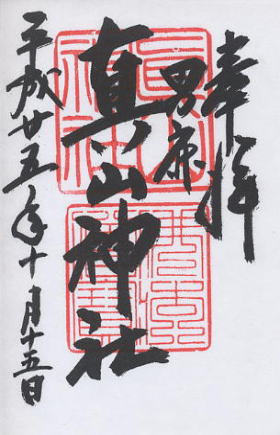 奉拝
男鹿
真山神社
平成廿五年十月十五日